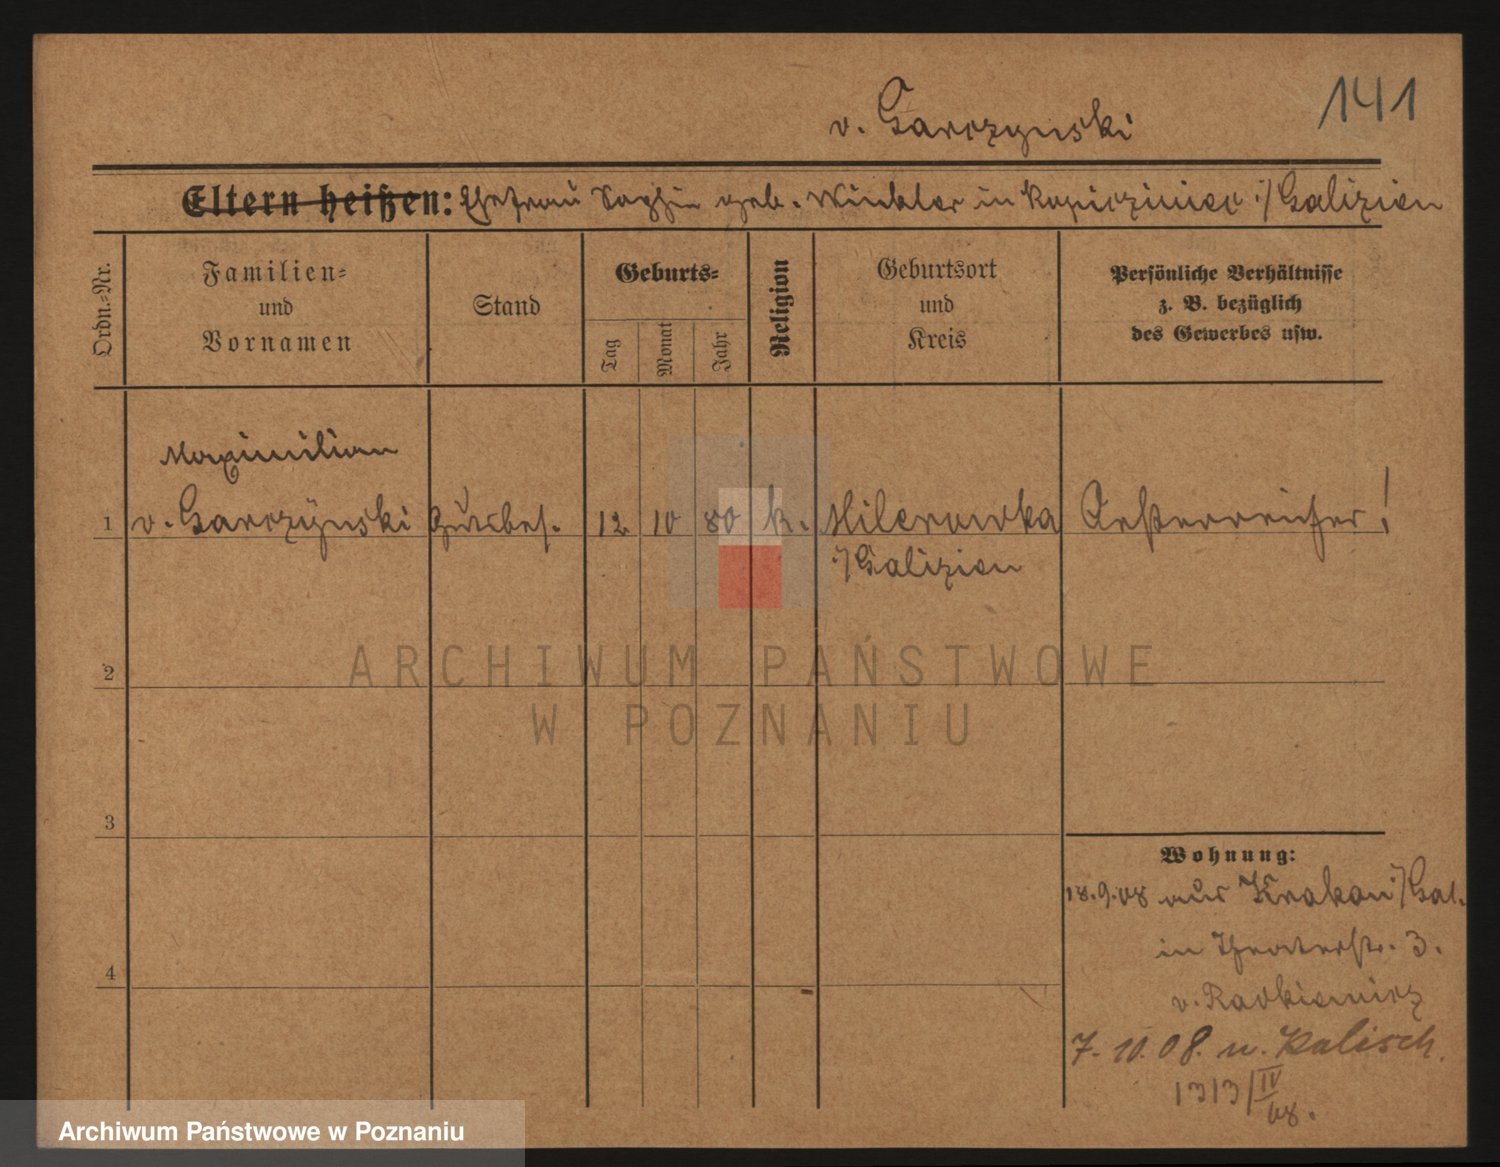 141
v. Garczynski
Eltern heißen: Ehefrau Sophie geb. Winkler in Kopiczinice i/Galizien
Ordn.-Nr.
Familien-
und
Vornamen
Stand
Geburts-
Tag
Monat
Jahr
Religion
Geburtsort
und
Kreis
Persönliche Verhältnisse
z. B. bezüglich
des Gewerbes usw.
Maximilian
1 v. Garczynski Gutsbes. 12 10 80 k. Milerowka Oesterreicher!
i/Galizien
2
3
4
Wohnung:
18.9.08 aus Krakau i/Gal.
in Theaterstr. 3.
v. Ratkiewicz
7.10.08. n. Kalisch.
1313/IV
08.
ARCHIWUM PAŃSTWOWE
W POZNANIU
Archiwum Państwowe w Poznaniu